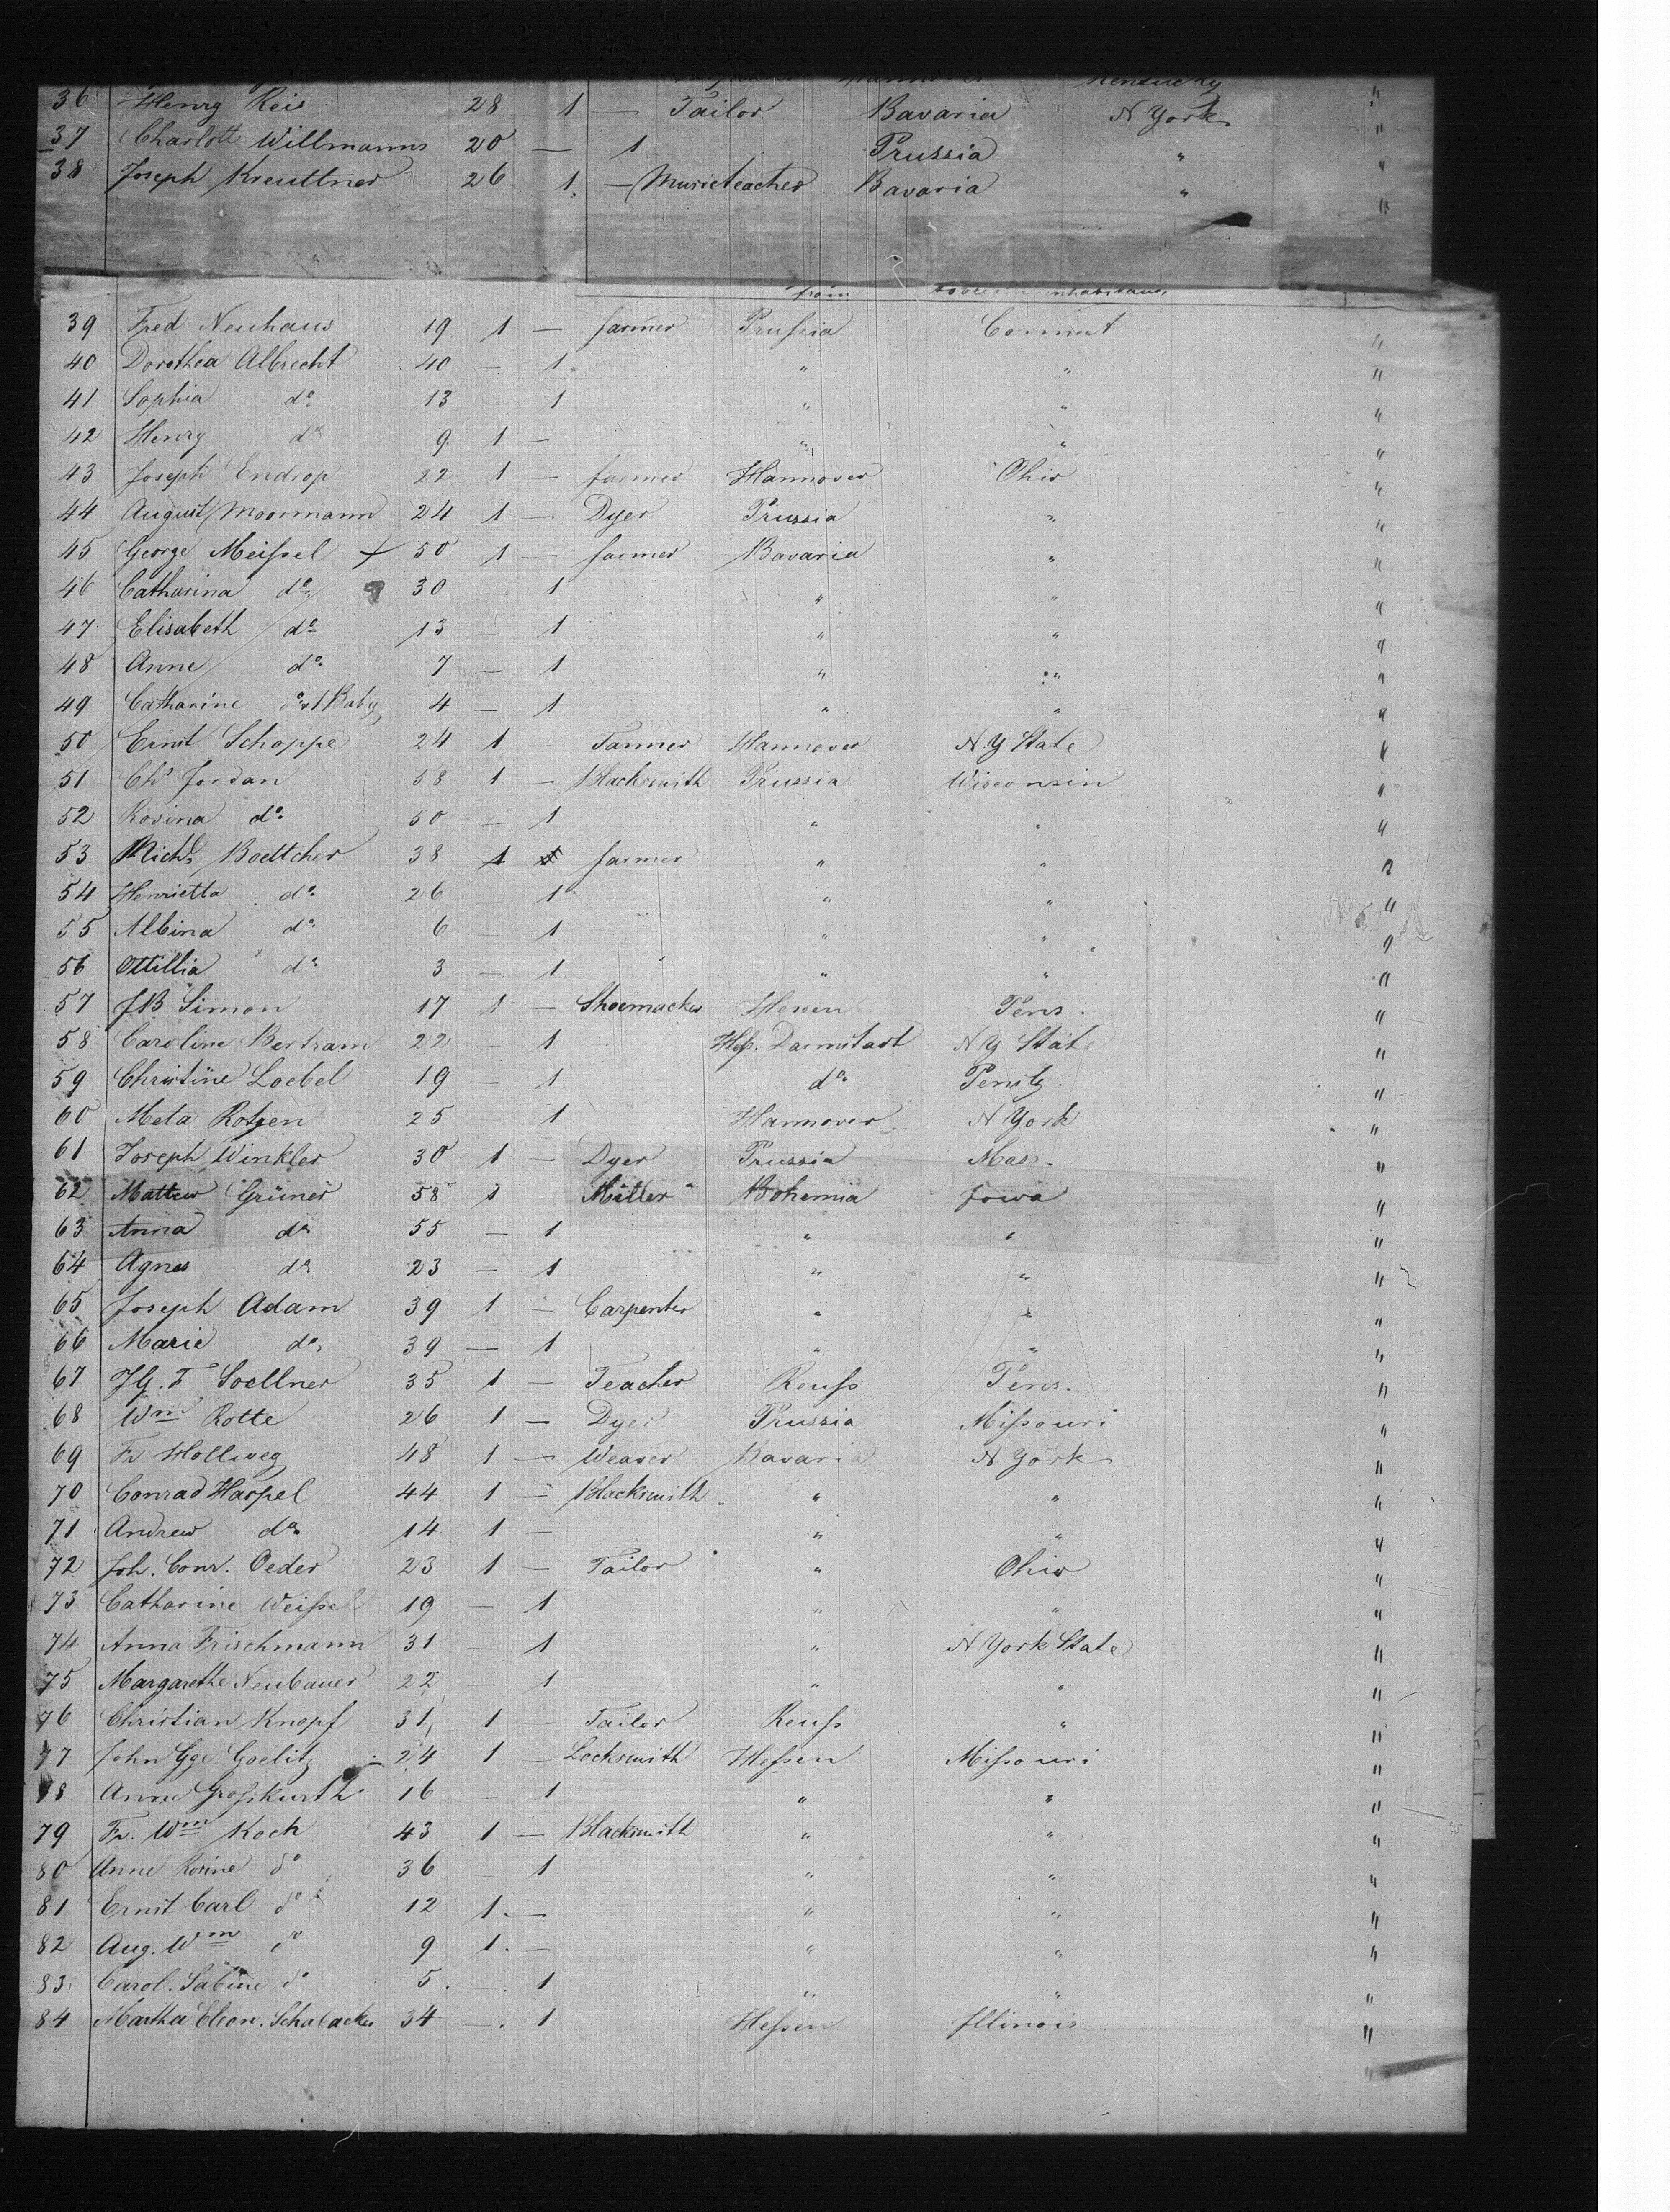 Kentucky
36 Henry Reis 28 1 — Tailor Bavaria N York "
37 Charlott Willmanns 20 — 1 Prussia " "
38 Joseph Kreuttner 26 1. — Musicteacher Bavaria " "
from inhabitants
39 Fred Neuhaus 19 1 — farmer Prussia Connect "
40 Dorothea Albrecht 40 — 1 " " "
41 Sophia do 13 1 " " "
42 Henry do 9 1 — " " "
43 Joseph Endrop 22 1 — farmer Hannover Ohio "
44 August Moormann 24 1 — Dyer Prussia " "
45 George Meissel + 50 1 — farmer Bavaria " "
46 Catharina do 30 1 " " "
47 Elisabeth do 13 — 1 " " "
48 Anne do 7 — 1 " " "
49 Catharine do + 1 Baby 4 — 1 " " "
50 Ernst Schoppe 24 1 — Tanner Hannover N.Y State "
51 Chs Jordan 58 1 — Blacksmith Prussia Wisconsin "
52 Rosina do 50 — 1 " " "
53 Michl Boettcher 38 1 farmer " " "
54 Henrietta do 26 — 1 " " "
55 Albina do 6 — 1 " " "
56 Ottillia do 3 — 1 " " "
57 JB Simon 17 1 — Shoemacker Hessen Pens. "
58 Caroline Bertram 22 — 1 Hess. Darmstadt N Y State "
59 Christine Loebel 19 — 1 do "
60 Meta Rotgen 25 1 Hannover N York "
61 Joseph Winkler 30 1 — Dyer Prussia Mass. "
62 Mattew Grüner 58 1 Miller Bohemia Iowa "
63 Anna do 55 — 1 " " "
64 Agnes do 23 — 1 " " "
65 Joseph Adam 39 1 — Carpenter " " "
66 Marie do 39 — 1 " " "
67 JG. F Soellner 35 1 — Teacher Reuss Pens. "
68 Wm Rotte 26 1 — Dyer Prussia Missouri "
69 Fr Hollweg 48 1 — Weaver Bavaria N York "
70 Conrad Haspel 44 1 — Blacksmith " " "
71 Andrew do 14 1 — " " "
72 Joh. Conr. Oeder 23 1 — Tailor " Ohio "
73 Catharine Weissel 19 — 1 " " "
74 Anna Frischmann 31 — 1 " N York State "
75 Margarethe Neubauer 22 — 1 " " "
76 Christian Knopf 31 1 — Tailor Reuss " "
77 John Gge Goelitz 24 1 — Locksmith Hessen Missouri "
78 Anne Grosskurth 16 — 1 " " "
79 Fr. Wm Koch 43 1 — Blacksmith " " "
80 Anne Rosine do 36 — 1 " " "
81 Ernst Carl do 12 1. — " " "
82 Aug. Wm do 9 1. — " " "
83 Carol. Sabine do 5. —. 1 " " "
84 Martha Eleon. Schalacker 34 —. 1 Hessen Illinois "